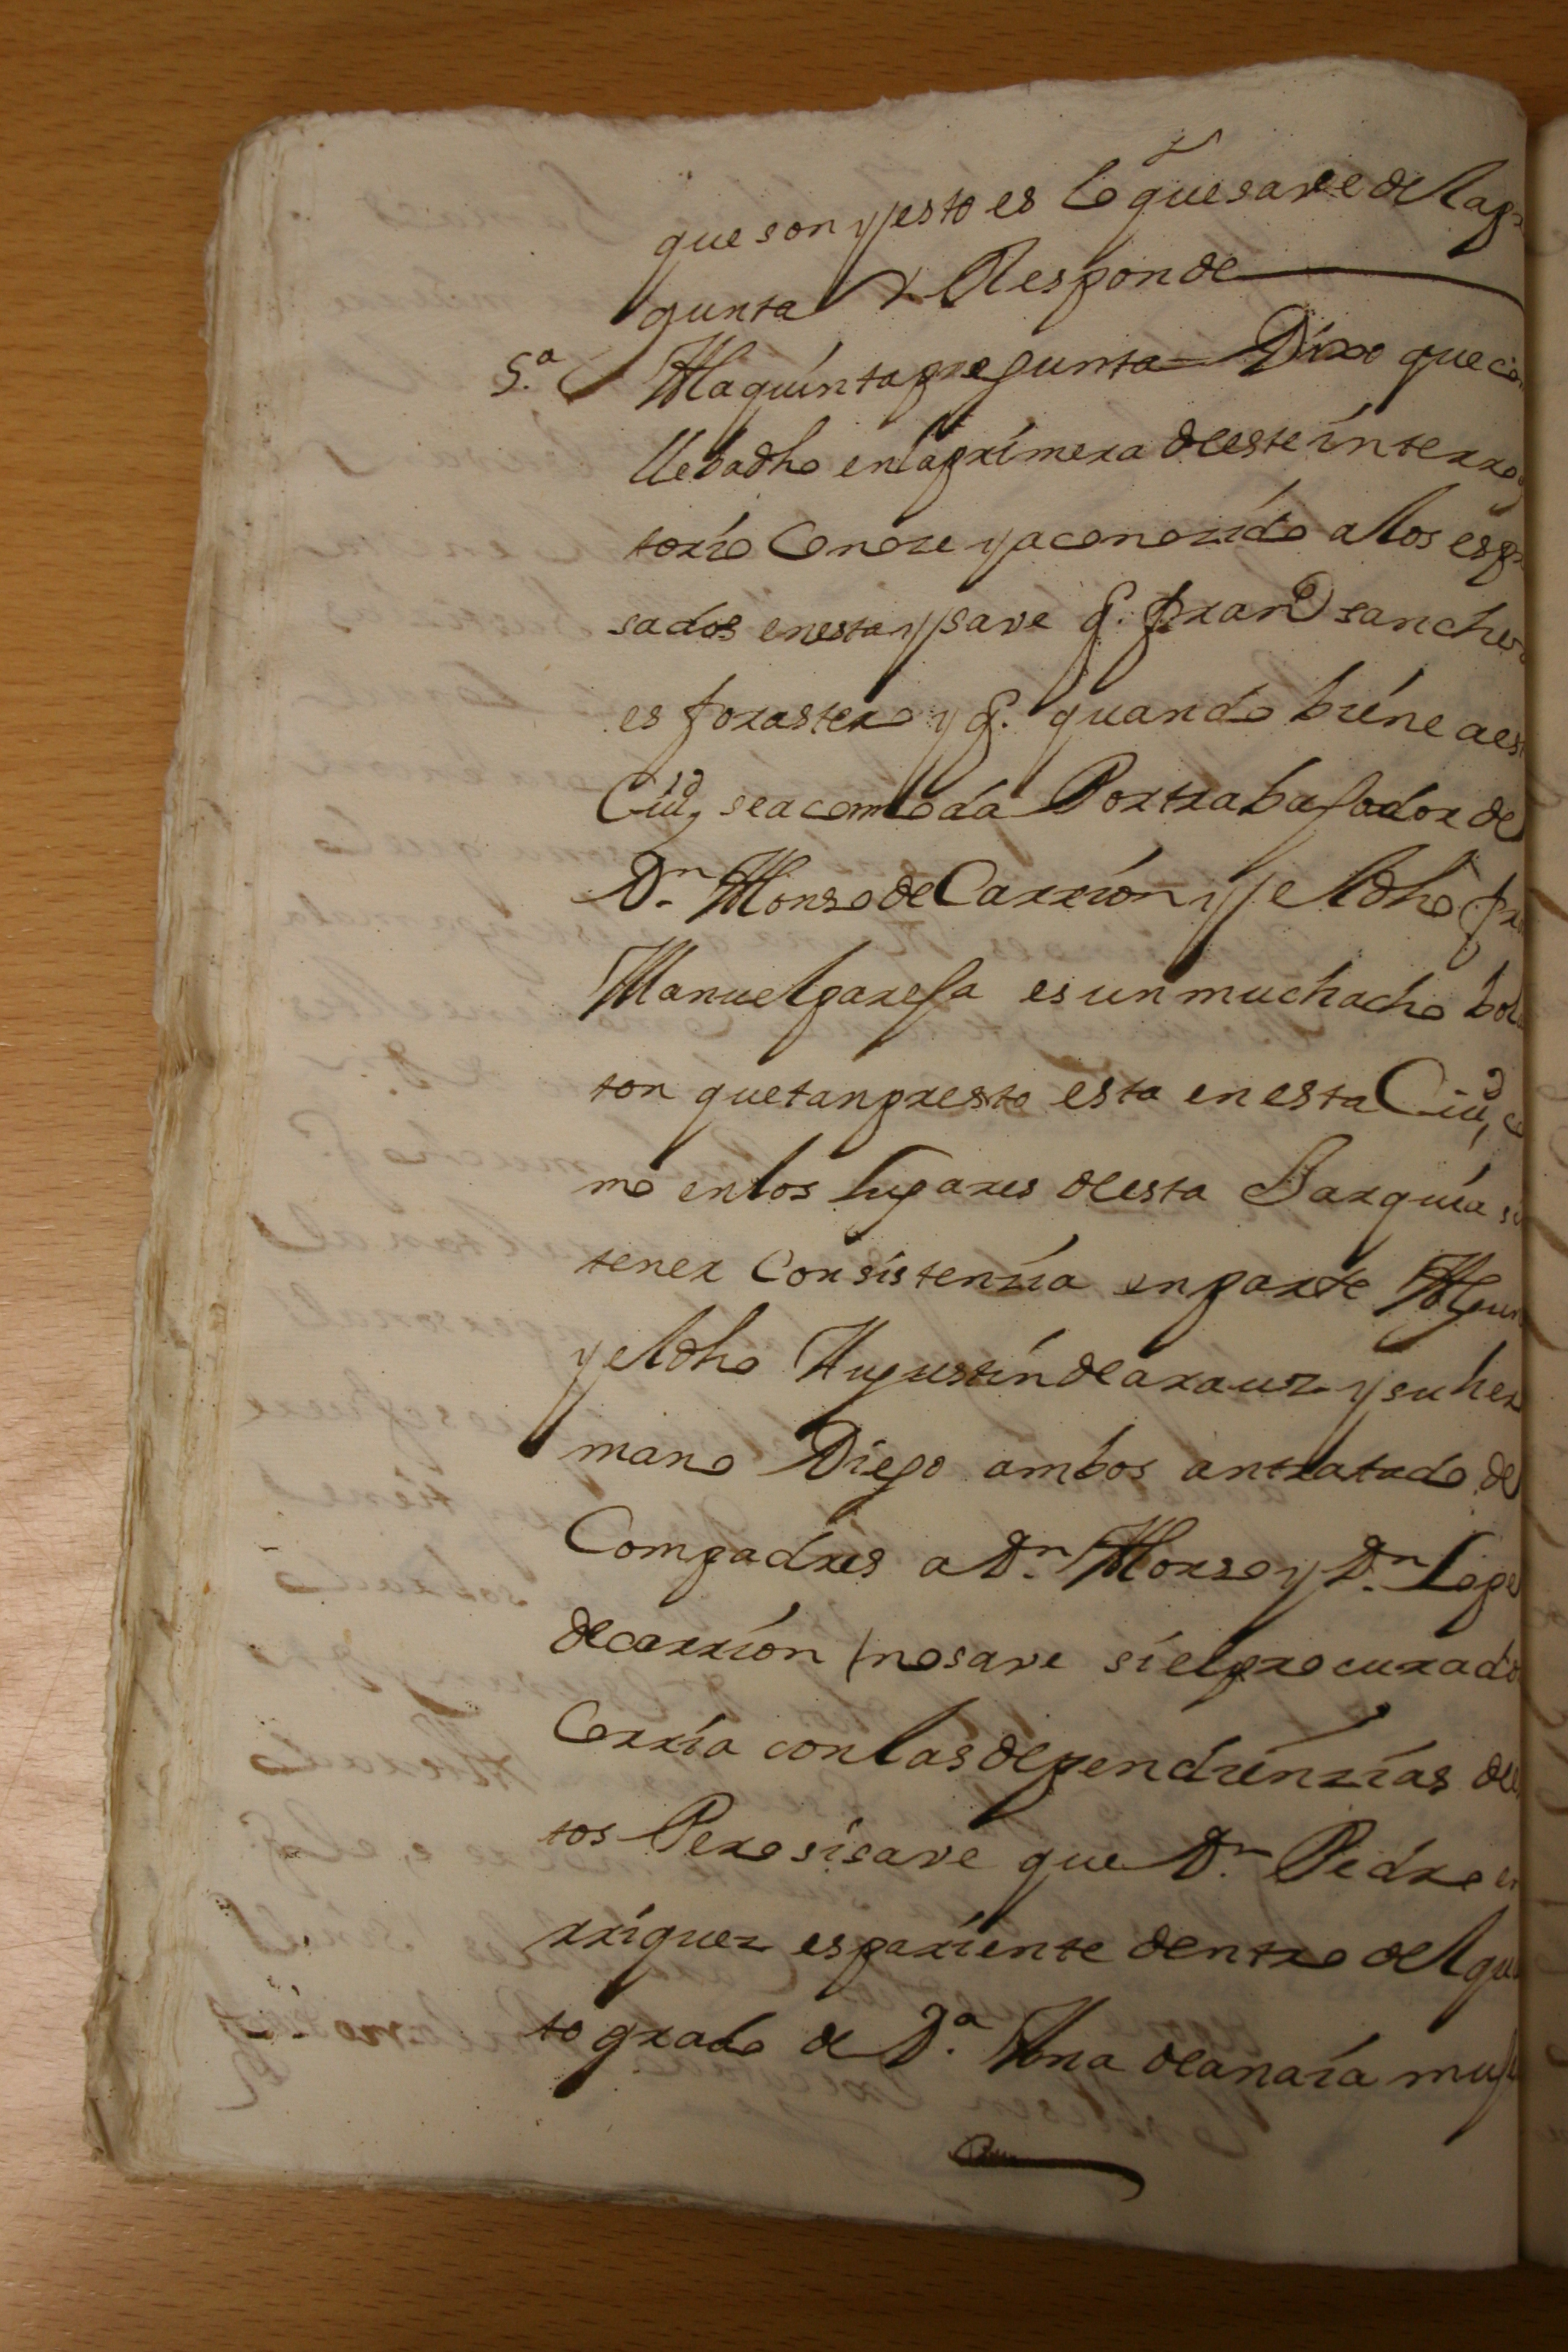 que son y esto es lo que save de la pr
gunta Y Responde
5.ª A la quinta pregunta = Dixo que co
lleba dho en la primera deeste interro
torio Conoze y a conozido a los espr
sados en esta y save q. franco sanchez
es forastero y q. quando biene a es
Ciud, se acomoda Por trabajador de
Dn. Alonso de Carrion y el dho fr
Manuel pareja es un muchacho bol
ton que tan presto esta en esta Ciud, co
mo en los lugares deesta Barquia si
tener Consistenzia en parte Algun
y el dho Augustin de arauz y su her
mano Diego ambos an tratado de
Compadres a Dn. Alonso y Dn. Lope
de carrion / no save si el procurado
Corria con las dependienzias de
tos Pero si save que Dn. Pedro en
rriquez es pariente dentro del qua
to grado de Da. Ana de anaia muj